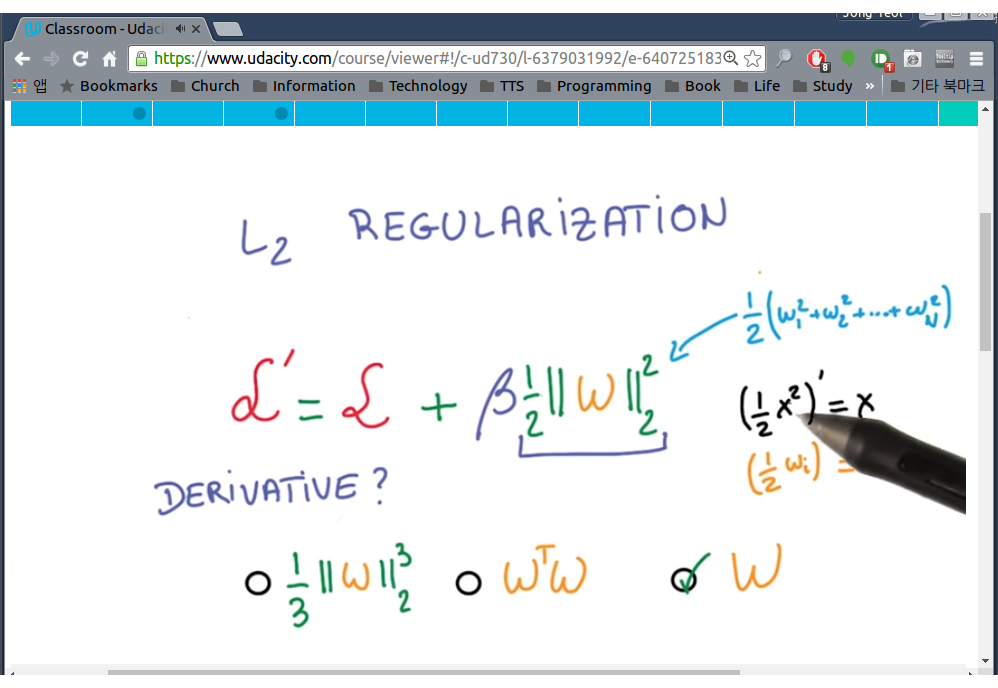 Jong Yeol
Classroom - Udaci
https://www.udacity.com/course/viewer#!/c-ud730/l-6379031992/e-640725183
8
1
앱 Bookmarks Church Information Technology TTS Programming Book Life Study » 기타 북마크
L₂ REGULARIZATION
1/2 (w₁² + w₂² + ... + w_N²)
ℒ' = ℒ + β 1/2 ||w||₂²
(1/2 x²)' = x
(1/2 wᵢ) =
DERIVATIVE?
1/3 ||w||₂³ wᵀw W